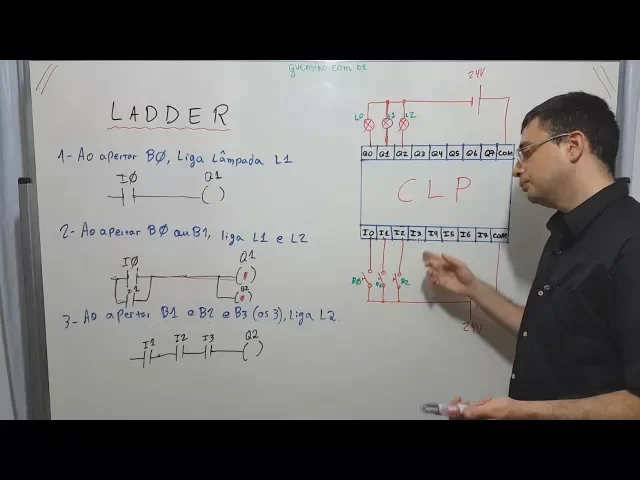 guersino.com.br
LADDER
1- Ao apertar BØ, Liga Lâmpada L1
IØ Q1
2- Ao apertar BØ ou B1, liga L1 e L2
IØ Q1
I1 Q2
3- Ao apertar B1 e B2 e B3 (os 3), Liga L2.
I1 I2 I3 Q2
24V
LO L1 L2
Q0 Q1 Q2 Q3 Q4 Q5 Q6 Q7 COM
CLP
I0 I1 I2 I3 I4 I5 I6 I7 COM
BØ B2
24V